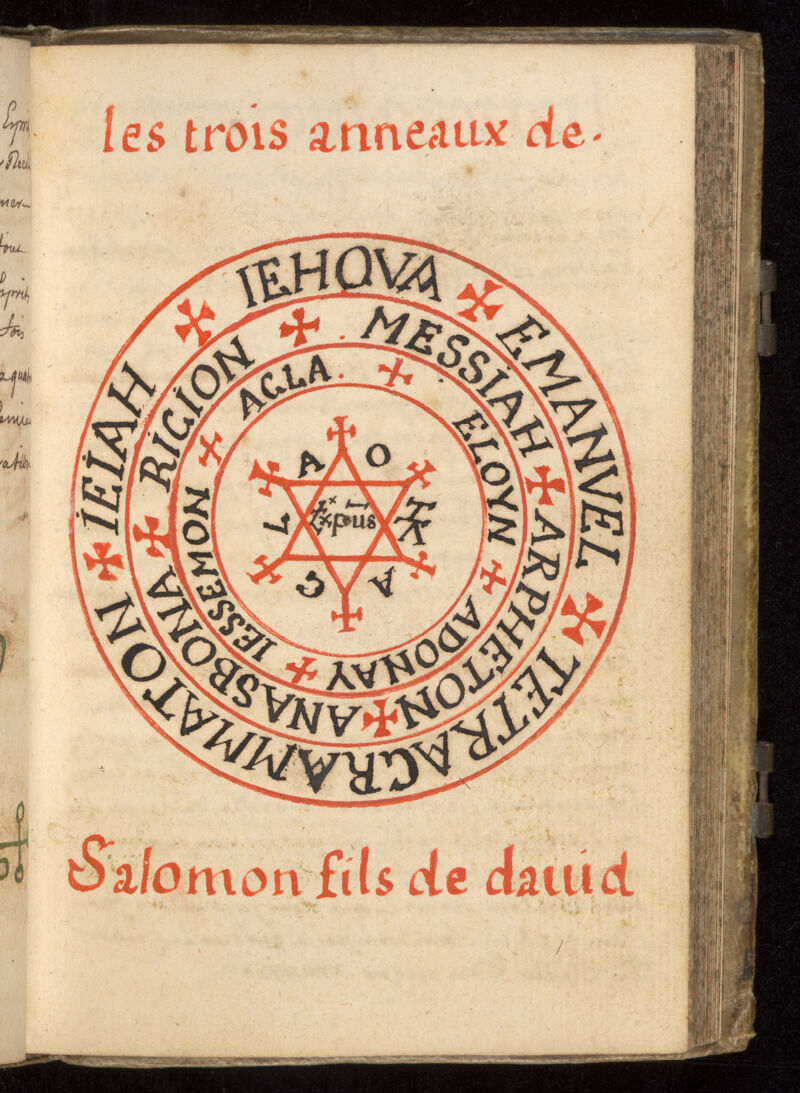 les trois anneaux de.
IEHOVA ✠ EMANVEL ✠ TETRAGRAMMATON ✠ IEIAH ✠
MESSIAH ✠ ARPHETON ✠ ANASBONA ✠ RIGION ✠
AGLA ✠ ELOYN ✠ ADONAY ✠ IESSEMON ✠
A O
L
G A
Salomon fils de dauid